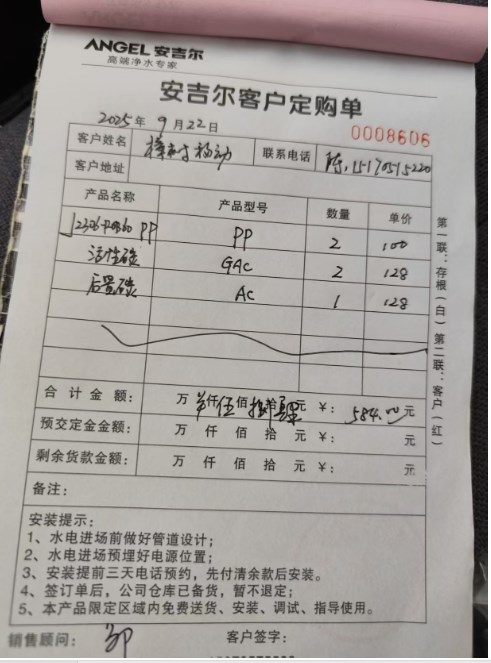 ANGEL 安吉尔
高端净水专家
安吉尔客户定购单
2025年 9月22日
0008606
客户姓名 樟树移动 联系电话 陈,15170515220
客户地址
产品名称 产品型号 数量 单价
J2306-P0860 PP PP 2 100
活性碳 GAC 2 128
后置碳 AC 1 128
合计金额: 万 仟伍佰捌拾肆元 ¥: 584.00元
预交定金金额: 万 仟 佰 拾 元 ¥: 元
剩余货款金额: 万 仟 佰 拾 元 ¥: 元
备注:
安装提示:
1、水电进场前做好管道设计;
2、水电进场预埋好电源位置;
3、安装提前三天电话预约,先付清余款后安装。
4、签订单后,公司仓库已备货,暂不退定;
5、本产品限定区域内免费送货、安装、调试、指导使用。
销售顾问: 邹 客户签字:
第一联:存根(白) 第二联:客户(红)